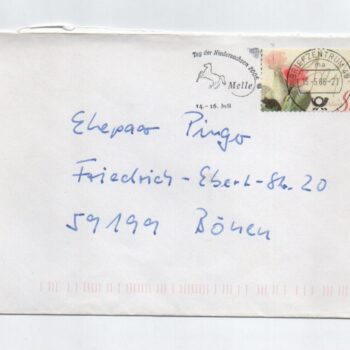 Tag der Niedersachsen 2006
Melle
14. - 16. Juli
BRIEFZENTRUM 49
ma
Ehepaar Pingo
Friedrich-Ebert-Str. 20
59199 Bönen